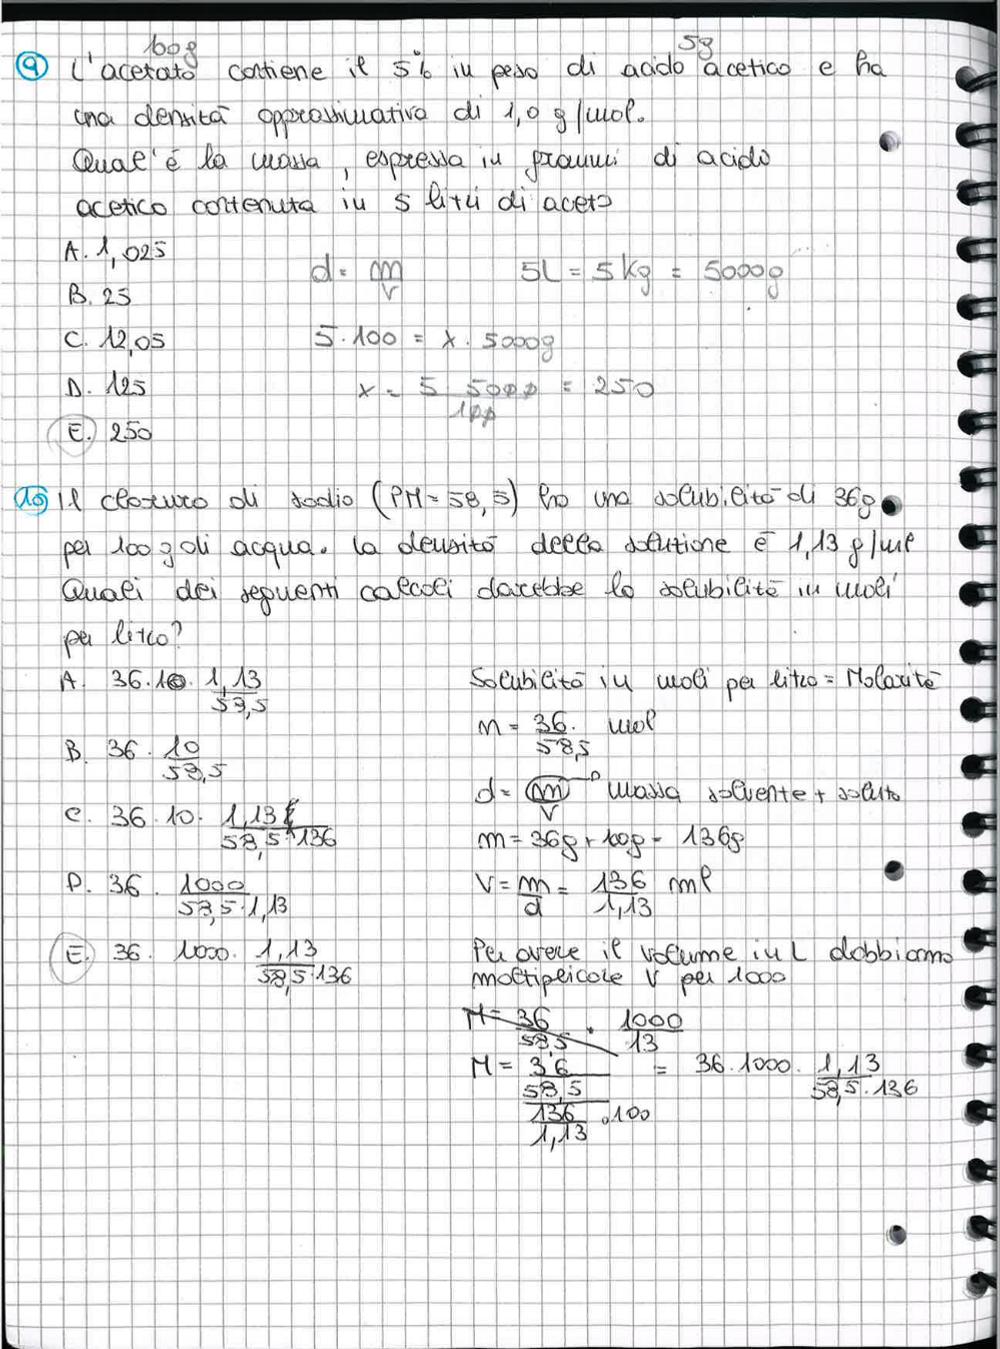 100g 5g
9 L'acetato contiene il 5% in peso di acido acetico e ha
una densità approssimativa di 1,0 g/mol.
Qual'è la massa, espressa in grammi di acido
acetico contenuta in 5 litri di aceto
A. 1,025
d = m/V 5L = 5Kg = 5000g
B. 25
C. 12,05 5·100 = x · 5000g
D. 125 x = 5 5000/100 = 250
E. 250
10 Il cloruro di sodio (PM=58,5) ha una solubilità di 36g
per 100 g di acqua. la densità della soluzione è 1,13 g/ml
Quali dei seguenti calcoli darebbe la solubilità in moli
per litro?
A. 36·10· 1,13/58,5 Solubilità in moli per litro = Molarità
n = 36/58,5 mol
B. 36 · 10/58,5
d = m/V massa solvente + soluto
C. 36·10· 1,13/58,5·136 m = 36g + 100g = 136g
D. 36 · 1000/58,5·1,13 V = m/d = 136/1,13 ml
E. 36· 1000· 1,13/58,5·136 Per avere il volume in L dobbiamo
moltiplicare V per 1000
M = 36/58,5 · 1000/13
M = 36/58,5 / 136/1,13 ·100 = 36·1000· 1,13/58,5·136